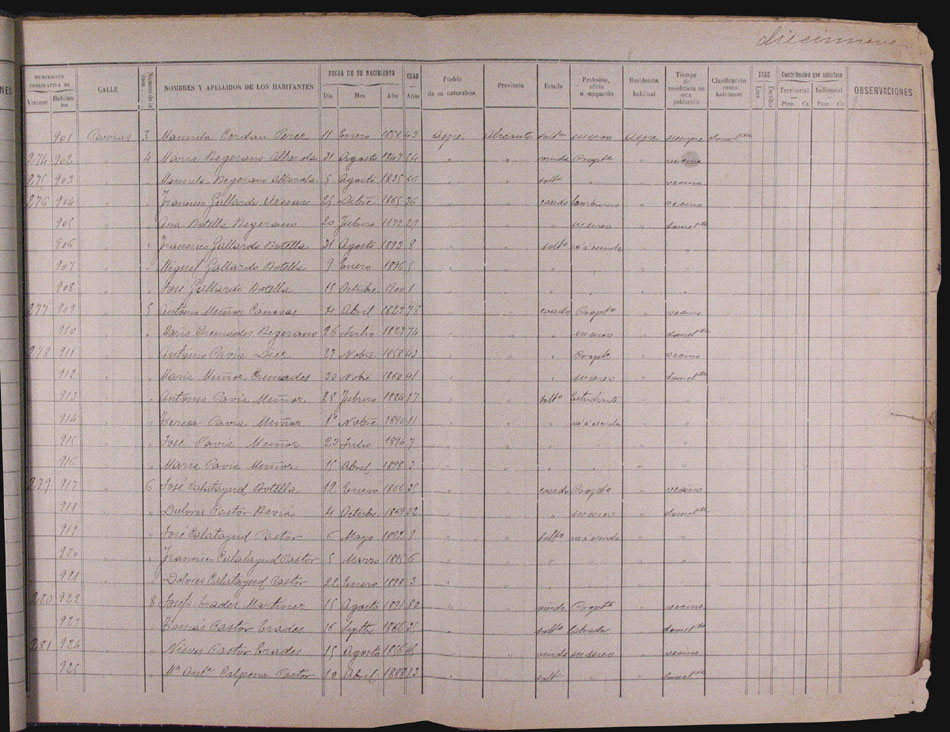 diecinueve
NUMERACIÓN CORRELATIVA DE Vecinos. Habitantes. CALLE Número de la casa NOMBRES Y APELLIDOS DE LOS HABITANTES FECHA DE SU NACIMIENTO Día Mes Año EDAD Años Pueblo de su naturaleza Provincia Estado Profesión, oficio ú ocupación Residencia habitual Tiempo de residencia en esta población Clasificación como habitante SABE Leer Escribir Contribución que satisface Territorial Ptas. Cs. Industrial Ptas. Cs. OBSERVACIONES
901 3 Manuela Cerdan Perez 11 Enero 1858 43 Aspe Alicante solt.ª su sexo Aspe siempre
274 902 4 Maria Begerano 21 Agosto 1847 54 " " viuda Propt.ª " " vecina
275 903 " Manuela Begerano 5 Agosto 1835 66 " " solt.ª " " " vecina
276 904 " Francisco Gallardo 25 Dcbre 1865 36 " " casado " vecino
905 " Ana Botella Begerano 20 Febrero " " " su sexo " " domct.ª
906 " Francisco Gallardo Botella 21 Agosto 1893 8 " " solt.º vá á escuela " "
907 " Miguel Gallardo Botella 9 Enero 1896 5 " "
908 " José Gallardo Botella 15 Octubre 1900 " "
277 909 5 Antonio Muñoz Canovas 4 Abril 78 " " casado Propt.º " vecino
910 " Maria Cremades Begerano 26 Julio 1827 74 " " " su sexo " domct.ª
278 911 " Antonio Pavia Diez 27 Nobre 1858 43 " " " Propt.º " vecino
912 " Maria Muñoz Cremades 30 Nobre 1860 41 " " " su sexo " domct.ª
913 " Antonio Pavia Muñoz 28 Febrero 1884 17 " " solt.º Estudiante " "
914 " Teresa Pavia Muñoz 1º Nobre 1890 11 " " " vá á escuela " "
915 " José Pavia Muñoz 23 Julio 1894 7 " "
916 " Maria Pavia Muñoz 15 Abril 1898 3 " "
279 917 6 José Calatayud Botella 12 Enero 1866 35 " " casado Propt.º " vecino
918 " Dolores Pastor 4 Octubre 1869 32 " " " su sexo " domct.ª
919 " José Calatayud Pastor 6 Mayo 1892 9 " " solt.º vá á escuela " "
920 " Francisco Calatayud Pastor 5 Marzo 1895 6 " "
921 " Dolores Calatayud Pastor 22 Enero 1898 3 " "
280 922 8 Josefa Prades Martinez 15 Agosto 1821 80 " " viuda Propt.ª " vecina
923 " Tomás Pastor Prades 16 " " solt.º labrador " domct.º
281 924 " Nieves Pastor Prades 15 Agosto " " viuda su sexo " vecina
925 " M.ª Ant.ª Calpena Pastor 10 Abril 1888 13 " " solt.ª " " domct.ª